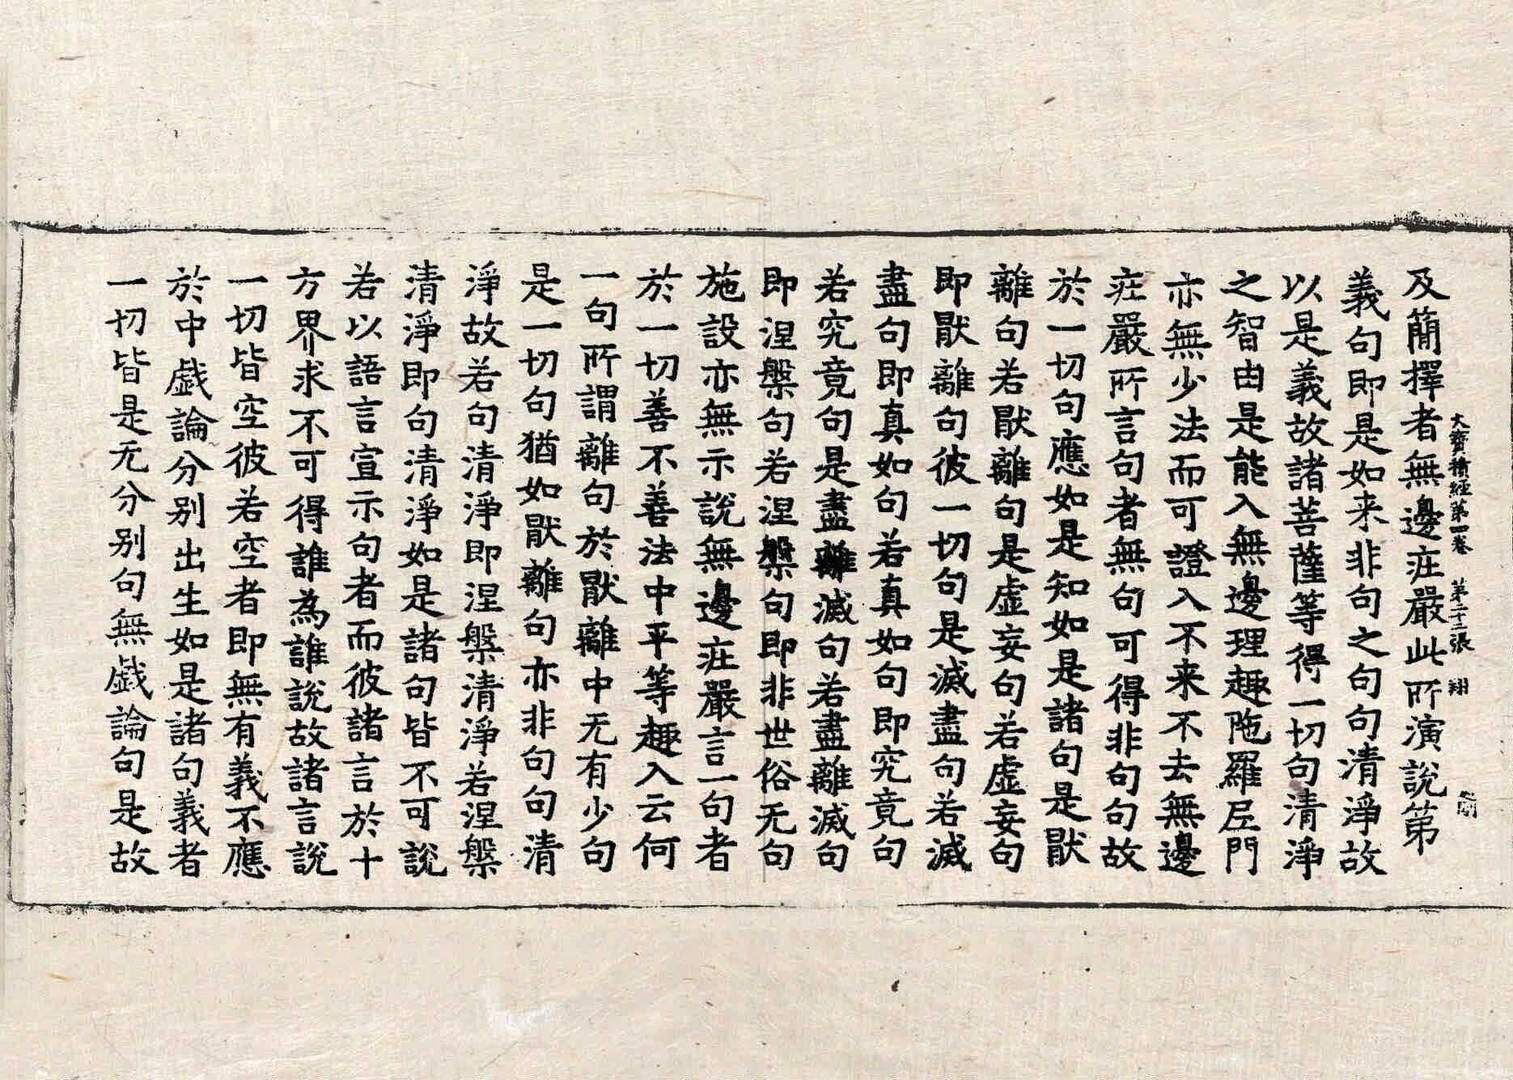 大寶積經第四卷 第二十三張 翔
及簡擇者無邊疘嚴此所演說第
義句即是如来非句之句句清淨故
以是義故諸菩薩等得一切句清淨
之智由是能入無邊理趣陁羅尼門
亦無少法而可證入不来不去無邊
疘嚴所言句者無句可得非句句故
於一切句應如是知如是諸句是猒
離句若猒離句是虛妄句若虛妄句
即猒離句彼一切句是滅盡句若滅
盡句即真如句若真如句即究竟句
若究竟句是盡離滅句若盡離滅句
即涅槃句若涅槃句即非世俗无句
施設亦無示說無邊疘嚴言一句者
於一切善不善法中平等趣入云何
一句所謂離句於猒離中无有少句
是一切句猶如猒離句亦非句句清
淨故若句清淨即涅槃清淨若涅槃
清淨即句清淨如是諸句皆不可說
若以語言宣示句者而彼諸言於十
方界求不可得誰為誰說故諸言說
一切皆空彼若空者即無有義不應
於中戲論分別出生如是諸句義者
一切皆是无分別句無戲論句是故